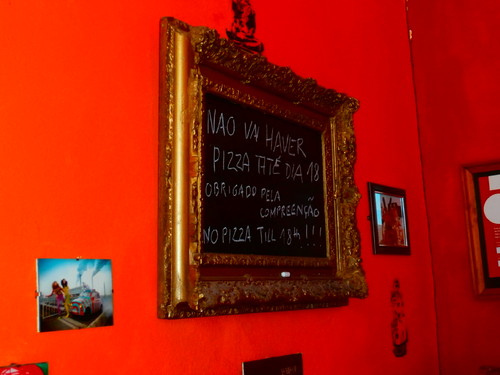 NAO VAI HAVER
PIZZA ATÉ DIA 18
OBRIGADO PELA
COMPREENÇÃO
NO PIZZA TILL 18th !!!